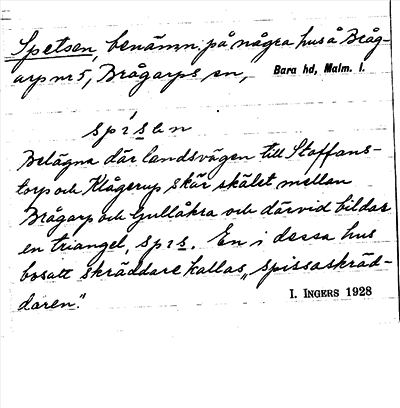 Spetsen, benämn. på några hus å Bråg-
arp nr 5, Brågarps sn, Bara hd, Malm. l.
spísen
Belägna där landsvägen till Staffans-
torp och Klågerup skär skälet mellan
Brågarp och Gullåkra och därvid bildar
en triangel, spɪs. En i dessa hus
bosatt skräddare kallas „spissaskräd-
daren".
I. INGERS 1928